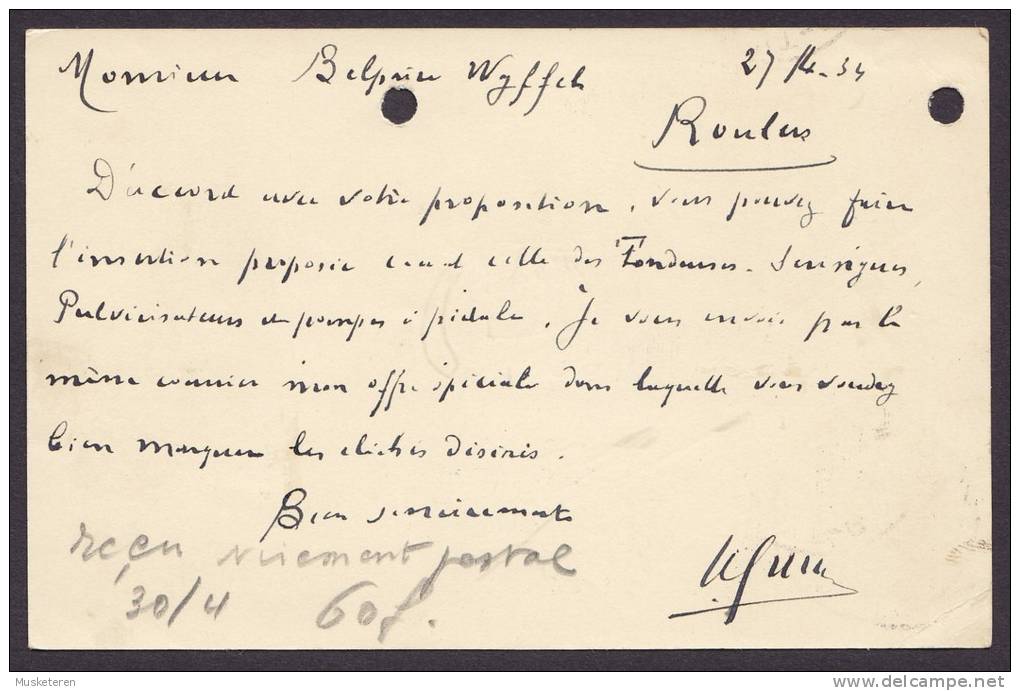 Monsieur Belpaire Wyffels 27/4-34
Roulers
D'accord avec votre proposition, vous pouvez faire
l'insertion proposée celle des Tondeuses. Seringues,
Pulvérisateurs pompes à pédale. Je vous envoie par le
même courrier mon offre spéciale dans laquelle vous voudrez
bien marquer les clichés désirés.
Bien sincèrement
reçu virement postal
30/4 60f.
Musketeren
delcampe.net